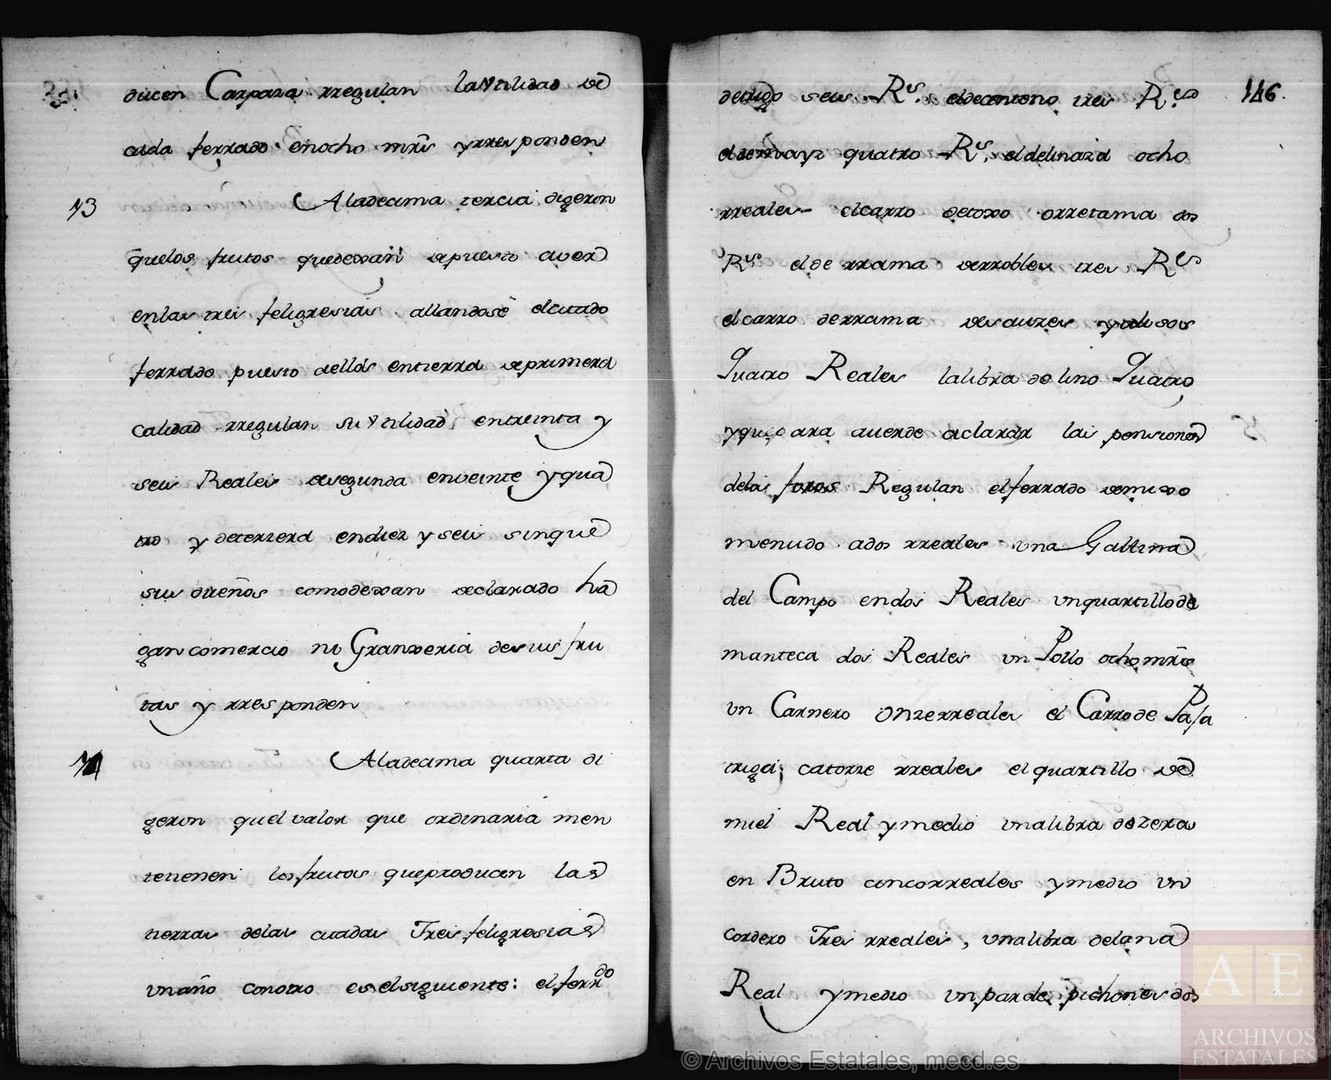 ducen Carpaza rregulan la Vtilidad de
cada ferrado en ocho mr̃s y rresponden
13 Aladecima tercia digeron
quelos frutos quedexan depuesto aver
enlas tres feligresias allandose elcitado
ferrado puesto dellos entierra deprimera
Calidad rregulan su Vtilidad entreinta y
seis Reales desegunda enveinte y qua
tro y deterzera endiez y seis sinque
sus dueños comodexan declarado ha
gan comercio ni Granxeria desus fru
tos y rresponden
14 Aladecima quarta di
geron quel valor que ordinaria men
tetienen los frutos queproducen las
tierras delas citadas Tres feligresias
unaño conotro es elsiguiente: elferrdo
146.
detrigo seis Rs. eldecenteno tres Rs
eldemayz quatro Rs. eldelinaza ocho
rreales elcarro detoxo orretama dos
Rs el de rrama derrobles tres Rs
elcarro derrama desauzes
Quatro Reales lalibra de lino Quatro
yque para averde aclarar las pensiones
delos foros Regulan elferrado demixo
menudo ados rreales una Gallina
del Campo endos Reales unquartillo de
manteca dos Reales un Pollo ocho mr̃s
un Carnero onzerreales el Carro de Pafa
triga catorze rreales elquartillo de
miel Real ymedio unalibra dezera
en Bruto cincorreales ymedio un
cordero Tres rreales, unalibra delana
Real ymedio unparde pichones dos
© Archivos Estatales, mecd.es
AE
ARCHIVOS
ESTATALES